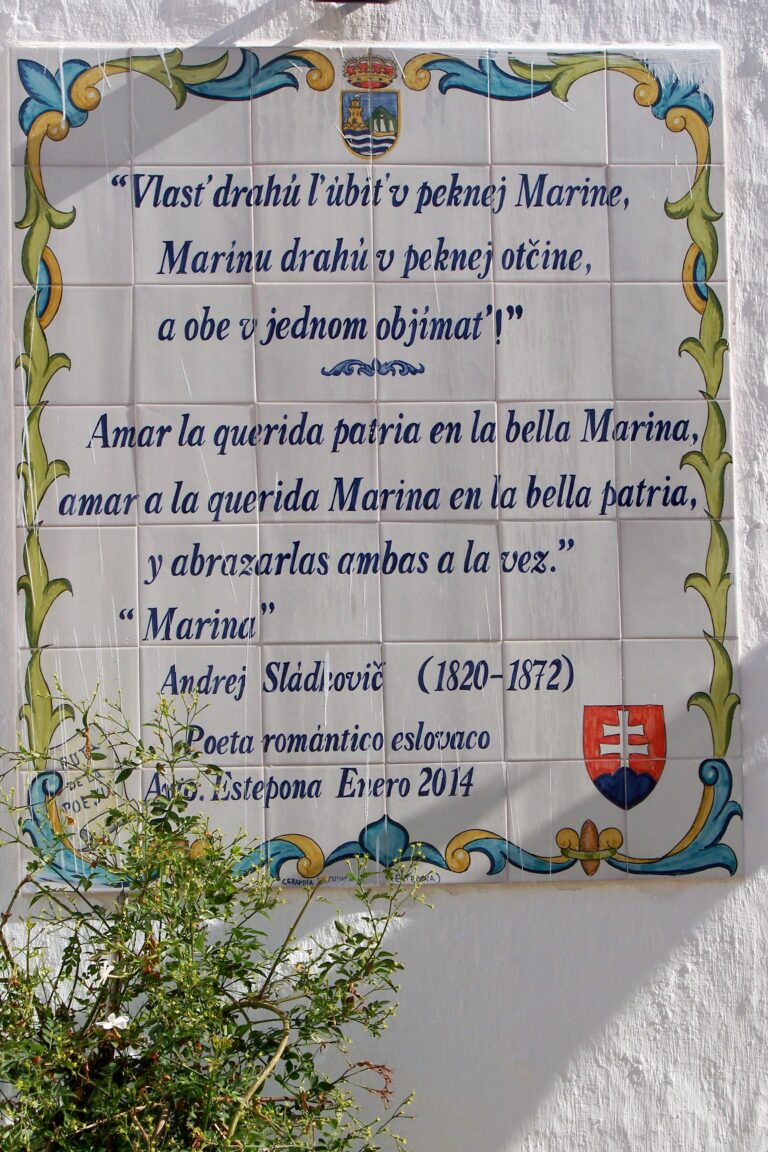 “Vlasť drahú ľúbiť v peknej Marine,
Marínu drahú v peknej otčine,
a obe v jednom objímať!”
Amar la querida patria en la bella Marina,
amar a la querida Marina en la bella patria,
y abrazarlas ambas a la vez.”
“Marina”
Andrej Sládkovič (1820-1872)
Poeta romántico eslovaco
Ayto. Estepona Enero 2014
RUTA
DE LA
POESIA
CERAMICA ESTEPONA)